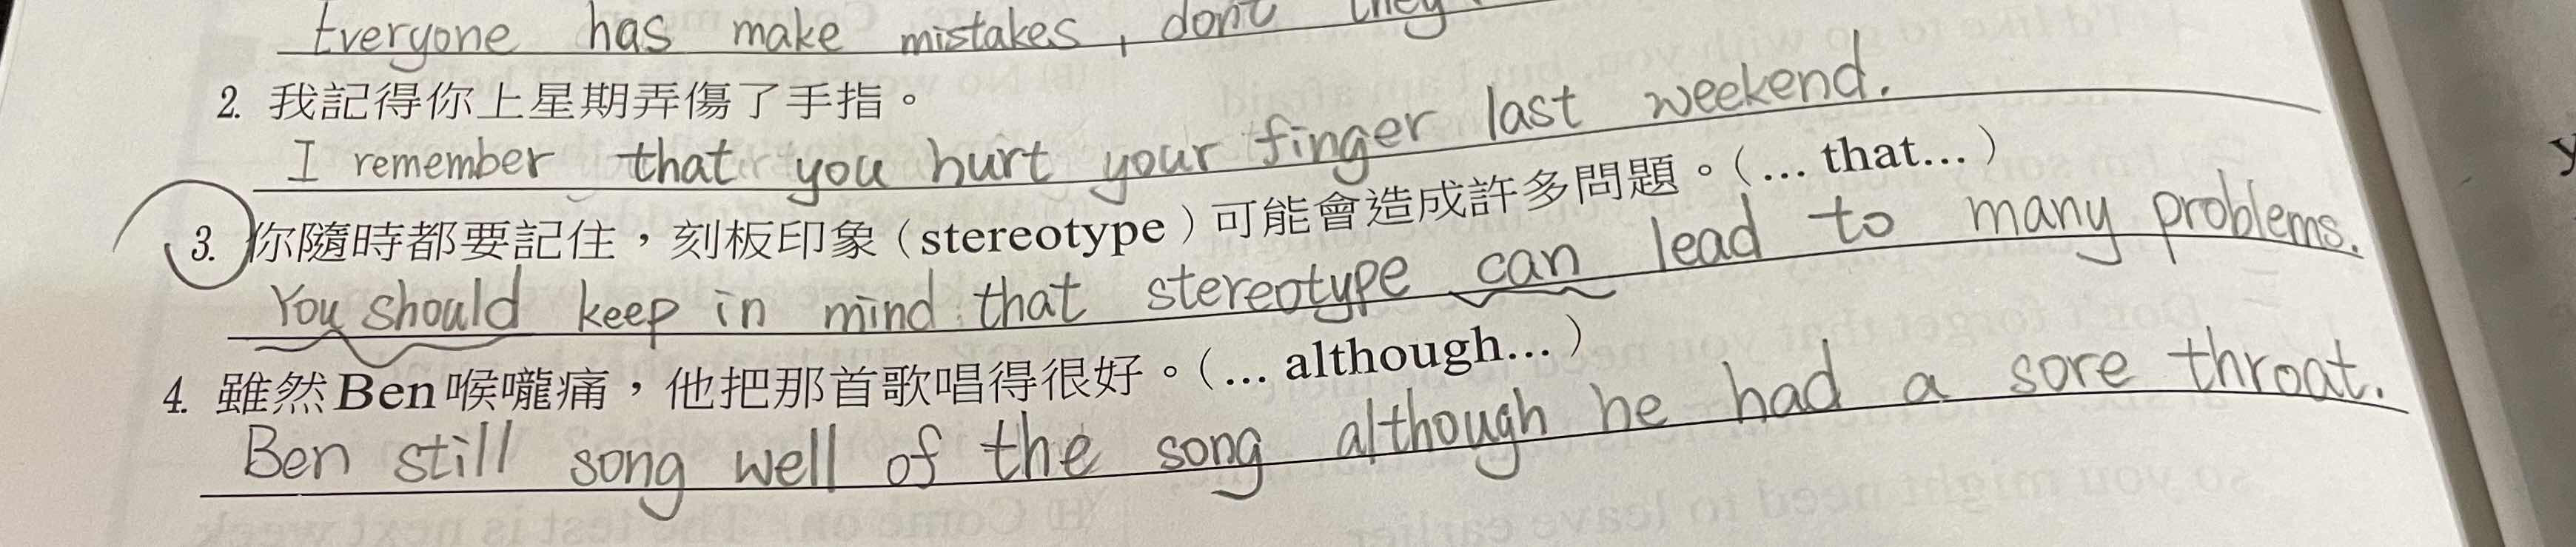 Everyone has make mistakes, don't they
2. 我記得你上星期弄傷了手指。
I remember that you hurt your finger last weekend.
3. 你隨時都要記住，刻板印象（stereotype）可能會造成許多問題。（... that...）
You should keep in mind that stereotype can lead to many problems.
4. 雖然Ben喉嚨痛，他把那首歌唱得很好。（... although...）
Ben still song well of the song although he had a sore throat.